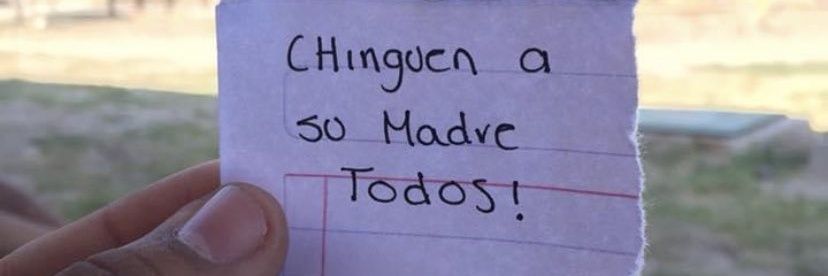 CHinguen a
su Madre
Todos!